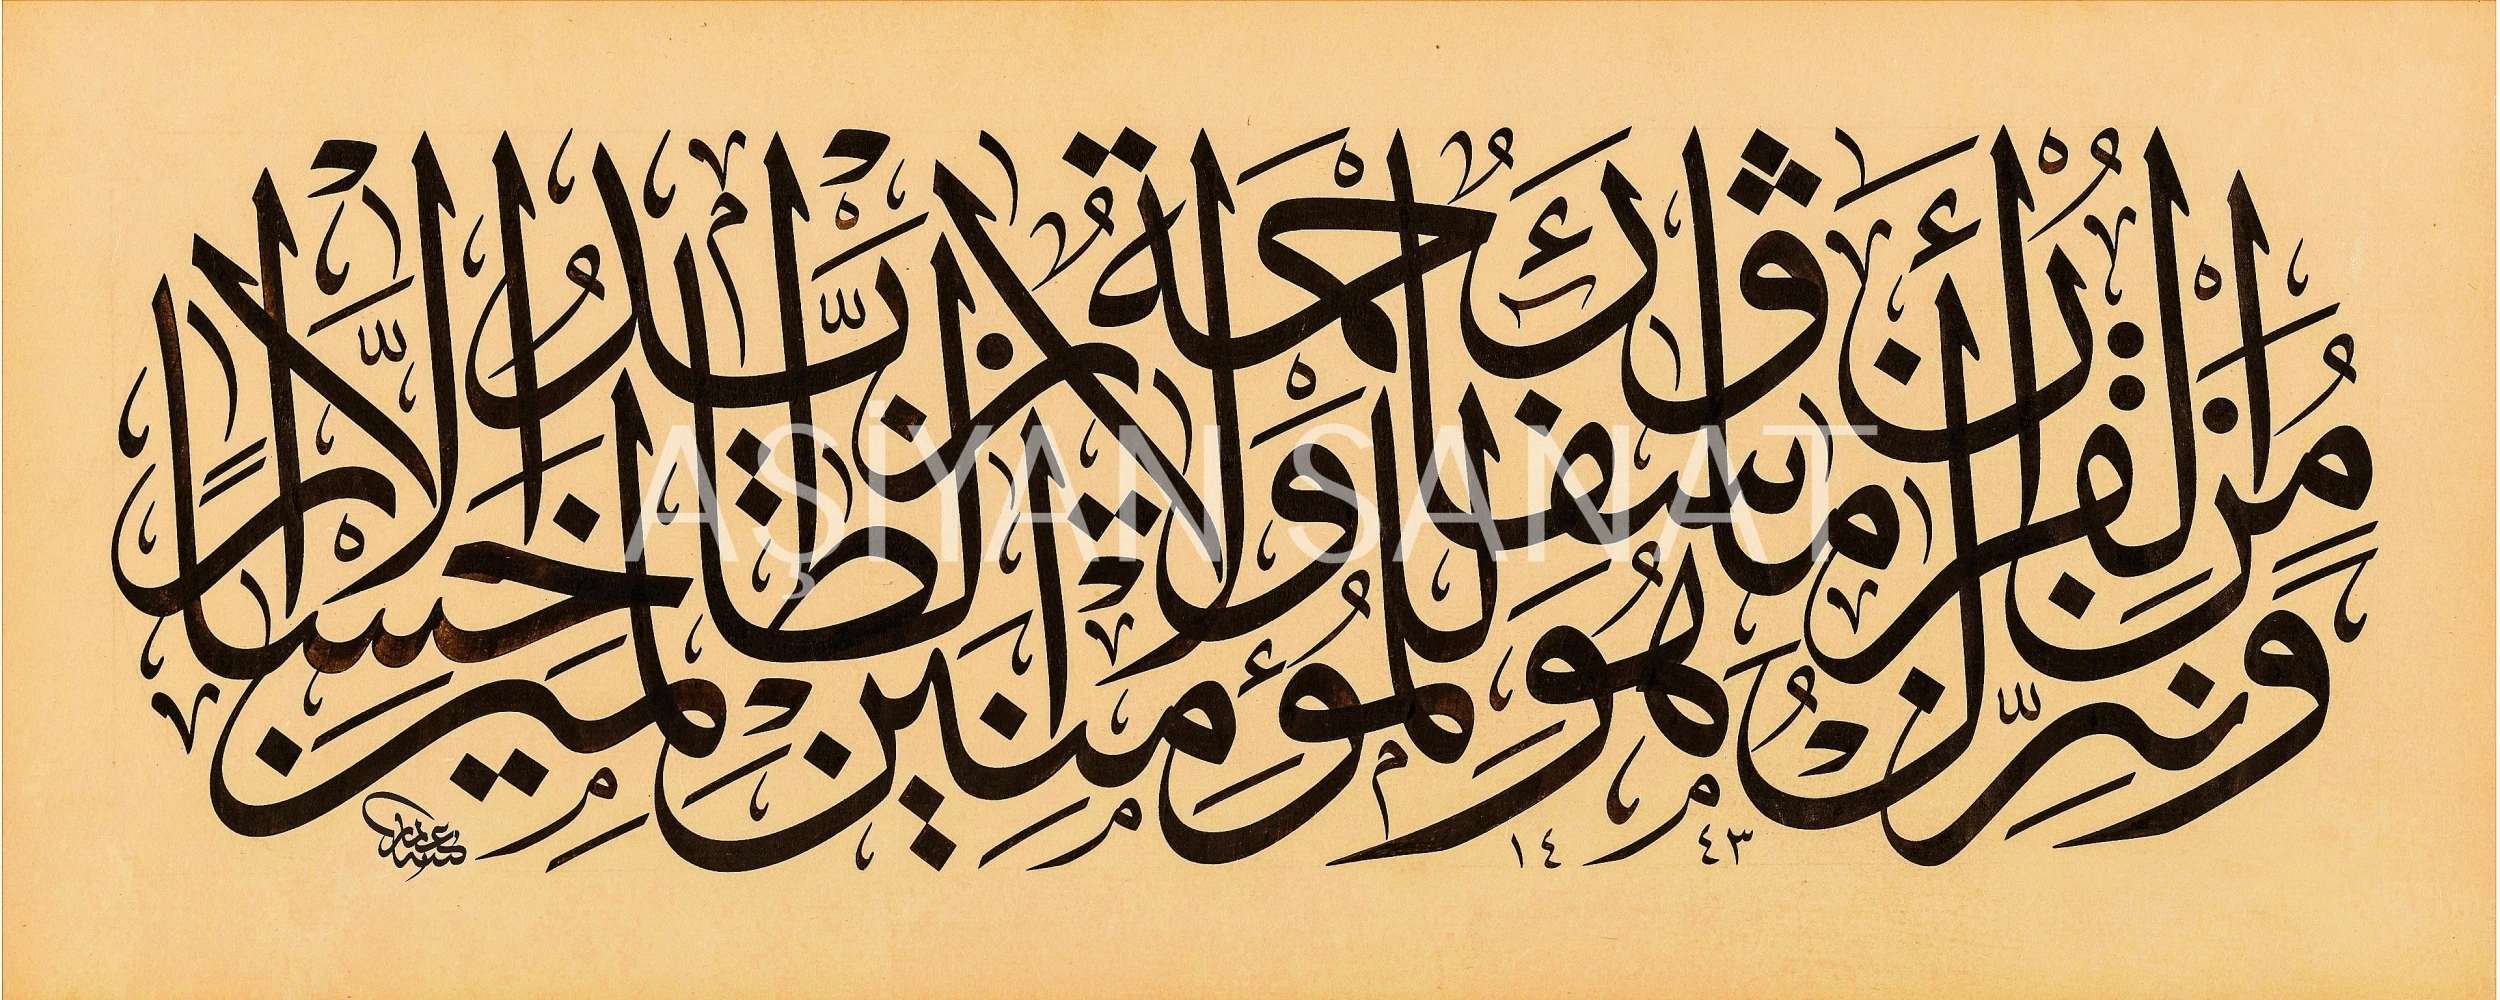 وَنُنَزِّلُ مِنَ الْقُرْآنِ مَا هُوَ شِفَاءٌ وَرَحْمَةٌ لِلْمُؤْمِنِينَ وَلَا يَزِيدُ الظَّالِمِينَ إِلَّا خَسَارًا
١٤٤٣
AŞİYAN SANAT